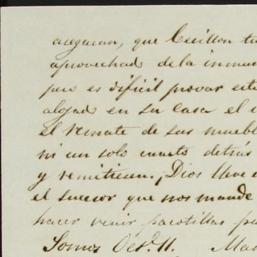 aseguran, que Cecillon tu
aprovechad de la inmun
pero es dificil provar este
algad en su casa el
el remate de sus mueble
ni un solo cuarto detrás
y remitieron. ¡Dios lleve
el sucesor que nos mande
hacer venir pacotillas
Somos Oct. 11. Ma